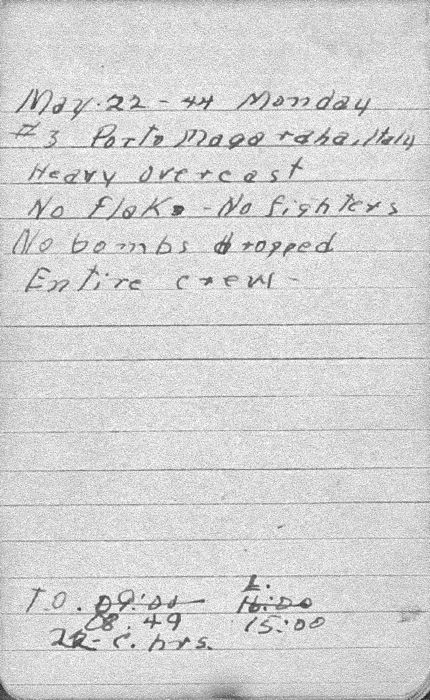 May. 22 - 44 Monday
#3 Porto Magardha, Italy
Heavy overcast
No flak - No fighters
No bombs dropped
Entire crew -
L.
T.O. 09:00 16:00
08.49 15:00
C. hrs.